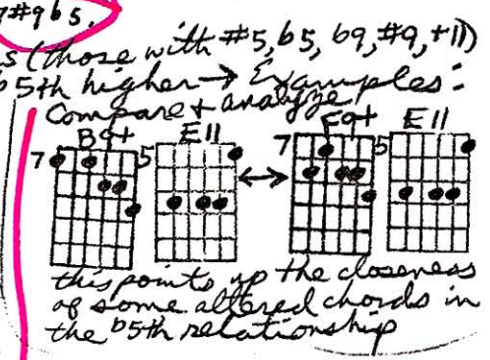 7#9b5.
s (those with #5, b5, b9, #9, +11)
b5th higher → Examples:
Compare + analyze
B9+ E11 F9+ E11
7 5 7 5
this points up the closeness
of some altered chords in
the b5th relationship